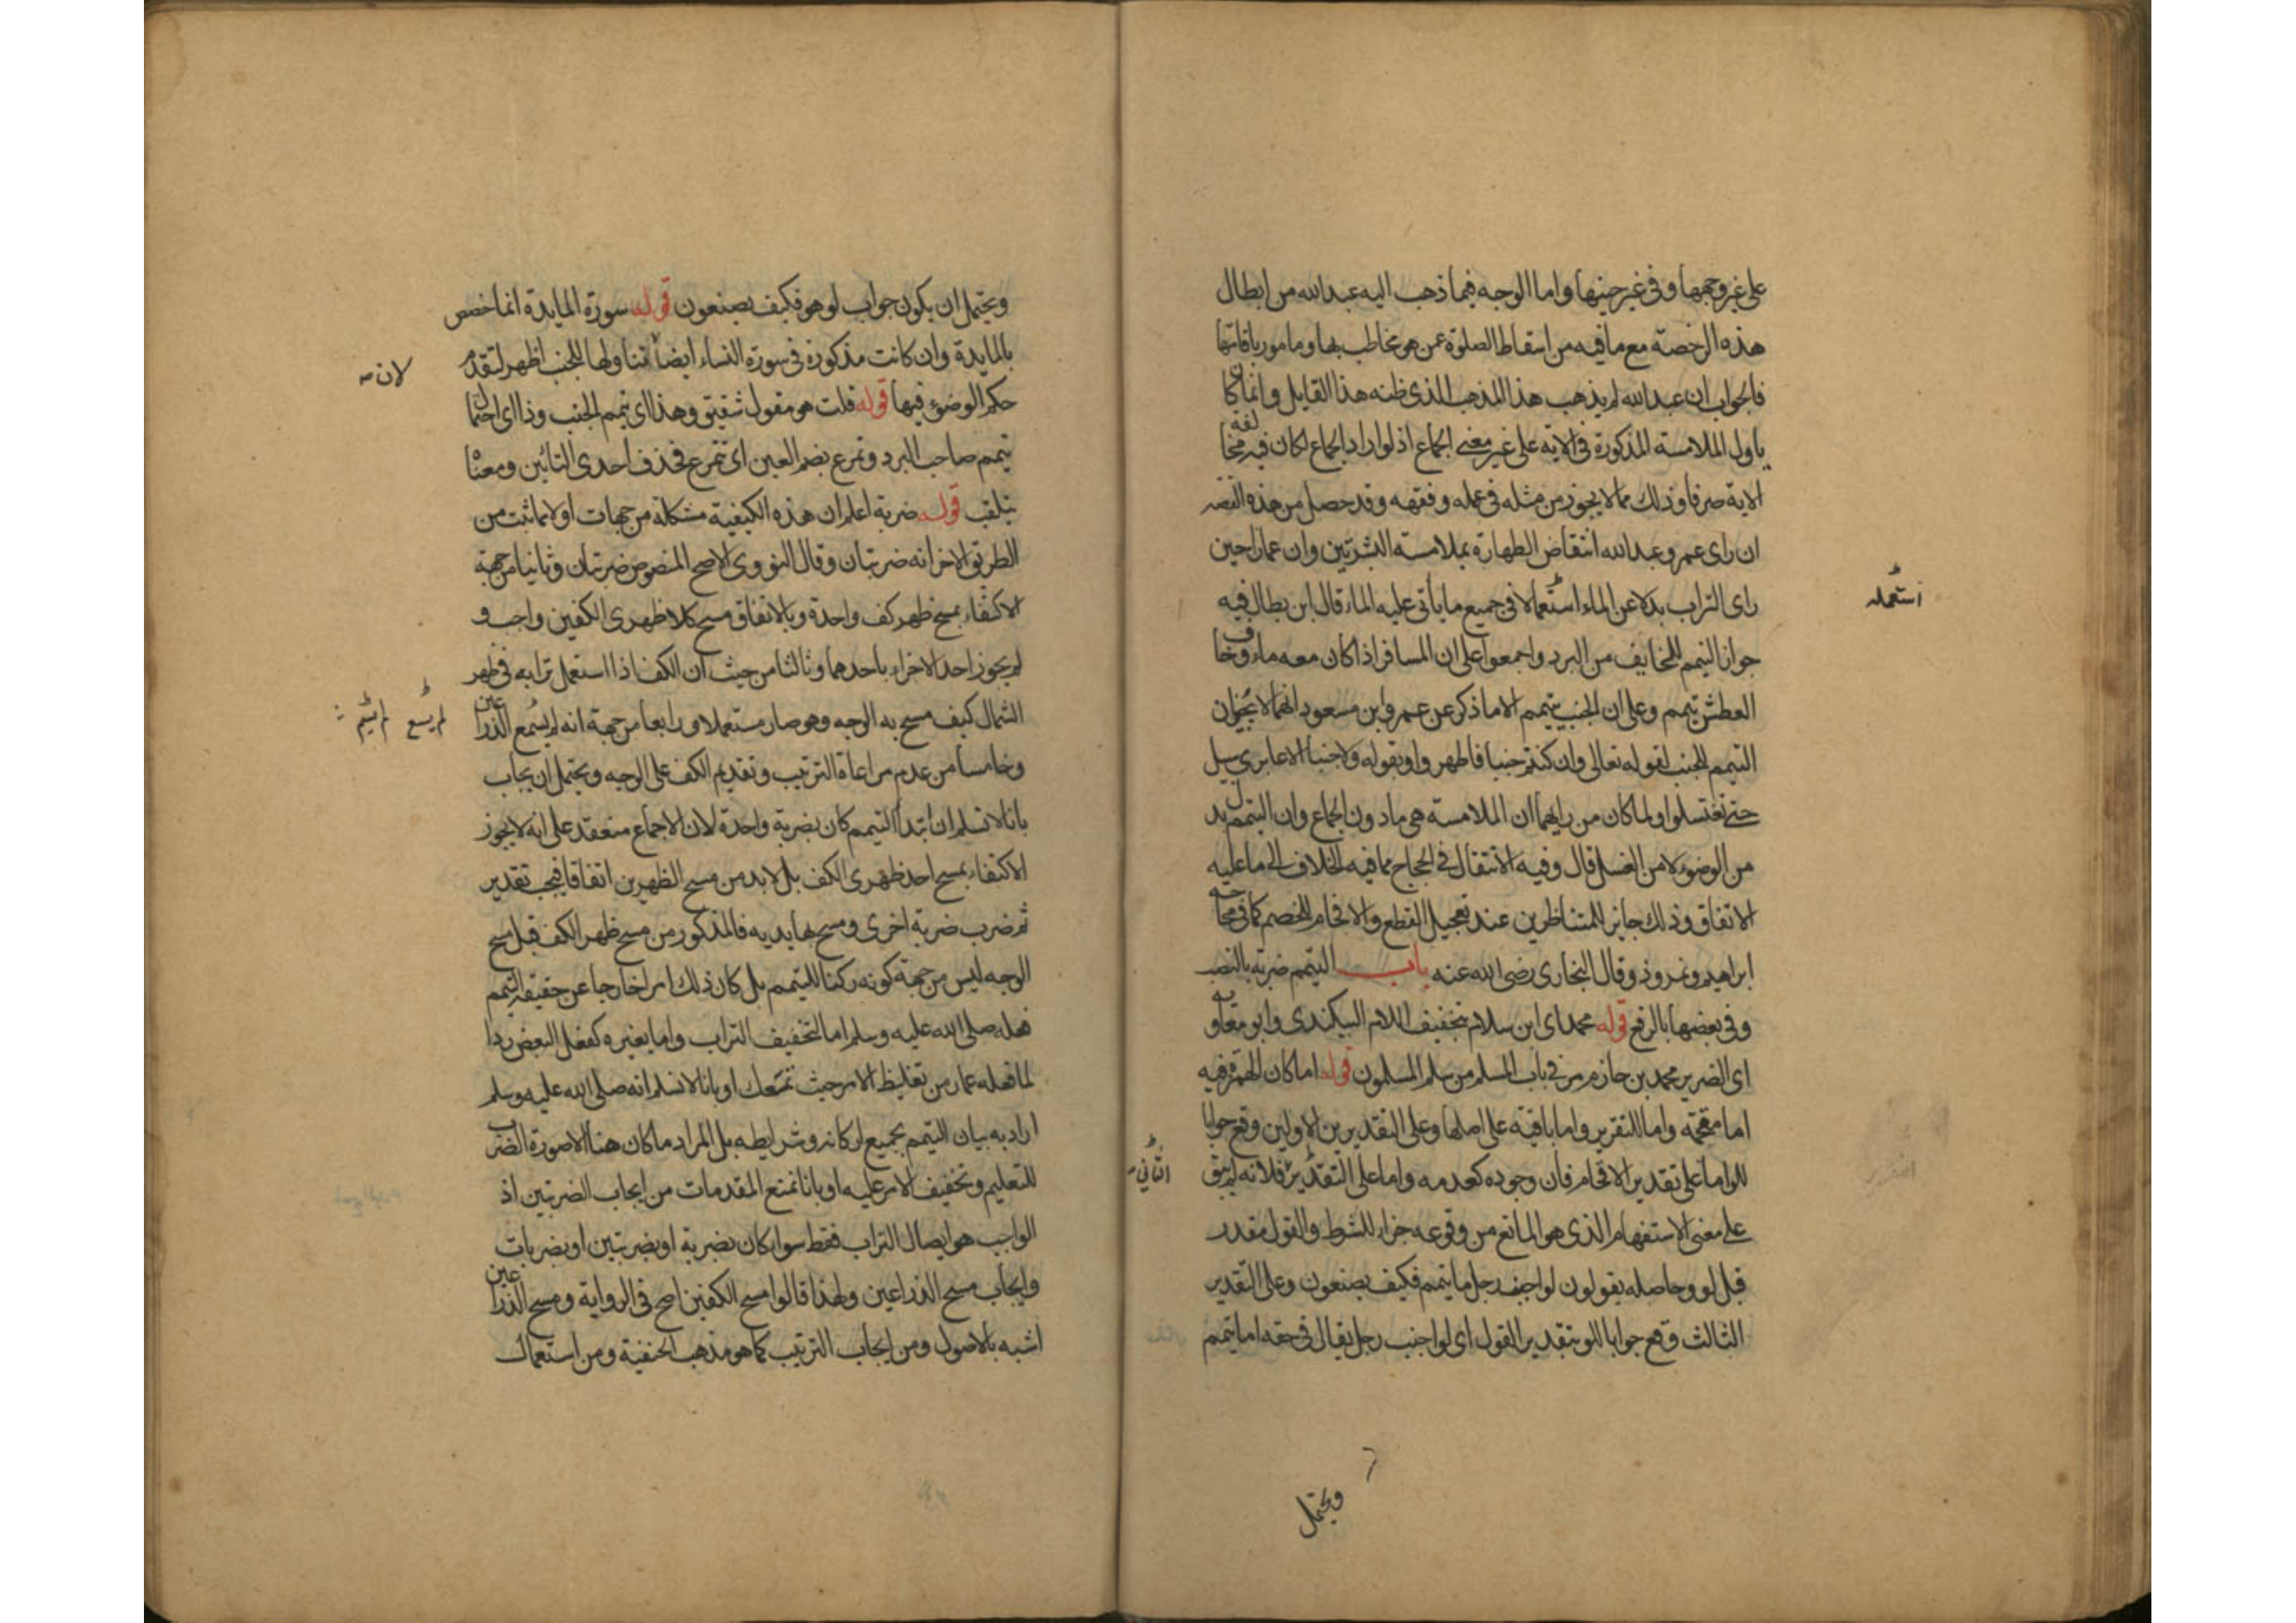 على غير وجهها وفي غير حينها واما الوجه فيما ذهب اليه عبد الله من ابطال
هذه الرخصة مع ما فيه من اسقاط الصلوة عمن هو مخاطب بها ومامور باقامتها
فالجواب ان عبد الله لم يذهب هذا المذهب الذي ظنه هذا القايل وانما كان
ياول الملامسة المذكورة في الاية على غير معنى الجماع اذ لو اراد الجماع لكان فيه مخالفة
الاية صرفا وذلك مما لا يجوز من مثله في علمه وفقهه وقد حصل من هذه القصة
ان راى عمر وعبد الله انتقاض الطهارة بملامسة البشرتين وان عمارا حين
راى التراب بدلا عن الماء استعملا في جميع ما ياتي عليه الماء قال ابن بطال فيه
استعمله
جواز التيمم للخايف من البرد واجمعوا على ان المسافر اذا كان معه ماء وخاف
العطش يتيمم وعلى ان الجنب يتيمم الا ما ذكر عن عمر وابن مسعود انهما لا يجيزان
التيمم للجنب لقوله تعالى وان كنتم جنبا فاطهروا وبقوله ولا جنبا الا عابري سبيل
حتى تغتسلوا ولما كان من رايهما ان الملامسة هي ما دون الجماع وان التيمم بدل
من الوضوء لا من الغسل قال وفيه الانتقال في الحجاج مما فيه الخلاف الى ما عليه
الاتفاق وذلك جايز للمتناظرين عند تعجيل القطع والافحام للخصم كما في محاجة
ابراهيم ونمروذ وقال البخاري رضى الله عنه باب التيمم ضربة بالنصب
وفي بعضها بالرفع قوله محمد اي ابن سلام بتخفيف اللام البيكندي وابو معاوية
اى الضرير محمد بن خازم مر في باب المسلم من سلم المسلمون قوله اما كان الهمزة فيه
اما مقحمة واما للتقرير واما باقية على اصلها وعلى التقديرين الاولين وقع جوابا
للو اما على تقدير الاقحام فان وجوده كعدمه واما على التقدير فلانه لم يبق
الثاني
على معنى الاستفهام الذي هو المانع من وقوعه جزاء للشرط والقول مقدر
قبل لو وحاصله يقولون لو اجنب رجل ما يتيمم فكيف يصنعون وعلى التقدير
الثالث وقع جوابا للو بتقدير القول اى لو اجنب رجل يقال في حقه اما يتيمم
ويحتمل
ويحتمل ان يكون جواب لو هو فكيف يصنعون قوله سورة المايدة انما خصص
بالمايدة وان كانت مذكورة في سورة النساء ايضا تناولها للجنب اظهر لتقدم
لان
حكم الوضوء فيها قوله قلت هو مقول شقيق وهذا اى تيمم الجنب وذا اى احتمال
تيمم صاحب البرد وتمرغ بضم الغين اى تتمرغ فحذف احدى التائين ومعناه
يتقلب قوله ضربة اعلم ان هذه الكيفية مشكلة من جهات اولا مما ثبت من
الطريق الاخر انه ضربتان وقال النووي الاصح المنصوص ضربتان وثانيا من جهة
الاكتفاء بمسح ظهر كف واحدة وبالاتفاق مسح كلا ظهرى الكفين واجب و
لم يجوز احد الاجزاء باحدهما وثالثا من حيث ان الكف اذا استعمل ترابه في ظهر
الشمال كيف مسح به الوجه وهو صار مستعملا ورابعا من جهة انه لم يسمع الذراعين
وخامسا من عدم مراعاة الترتيب وتقديم الكف على الوجه ويحتمل ان يجاب
بانا لا نسلم ان ابتدا التيمم كان بضربة واحدة لان الاجماع منعقد على انه لا يجوز
الاكتفاء بمسح احد ظهرى الكف بل لا بد من مسح الظهرين اتفاقا فيجب تقدير
ثم ضرب ضربة اخرى ومسح بها يديه فالمذكور من مسح ظهر الكف قبل مسح
الوجه ليس من جهة كونه ركنا للتيمم بل كان ذلك امرا خارجا عن حقيقة التيمم
فعله صلى الله عليه وسلم اما لتخفيف التراب واما بغيره كفعل البعض ردا
لما فعله عمار من تغليظ الامر حيث تمعك او بانا لا نسلم انه صلى الله عليه وسلم
اراد به بيان التيمم بجميع اركانه وشرايطه بل المراد ما كان هنا الا صورة الضرب
للتعليم وتخفيف الامر عليه او بانا نمنع المقدمات من ايجاب الضربتين اذ
الواجب هو ايصال التراب فقط سواء كان بضربة او بضربتين او بضربات
وايجاب مسح الذراعين ولهذا قالوا مسح الكفين اصح في الرواية ومسح الذراعين
اشبه بالاصول ومن ايجاب الترتيب كما هو مذهب الحنفية ومن استعمال